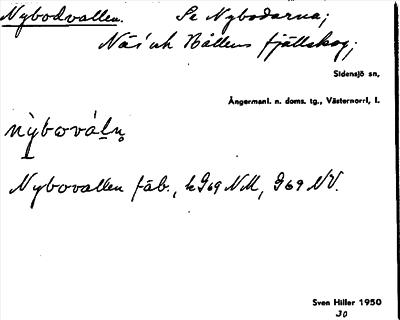 Nybodvallen. Se Nybodarna;
Näs' och Bölens fjällskog;
Sidensjö sn,
Ångermanl. n. doms. tg., Västernorrl. l.
Nybovallen fäb., k G69 NM, G69 NV.
Sven Hiller 1950
30